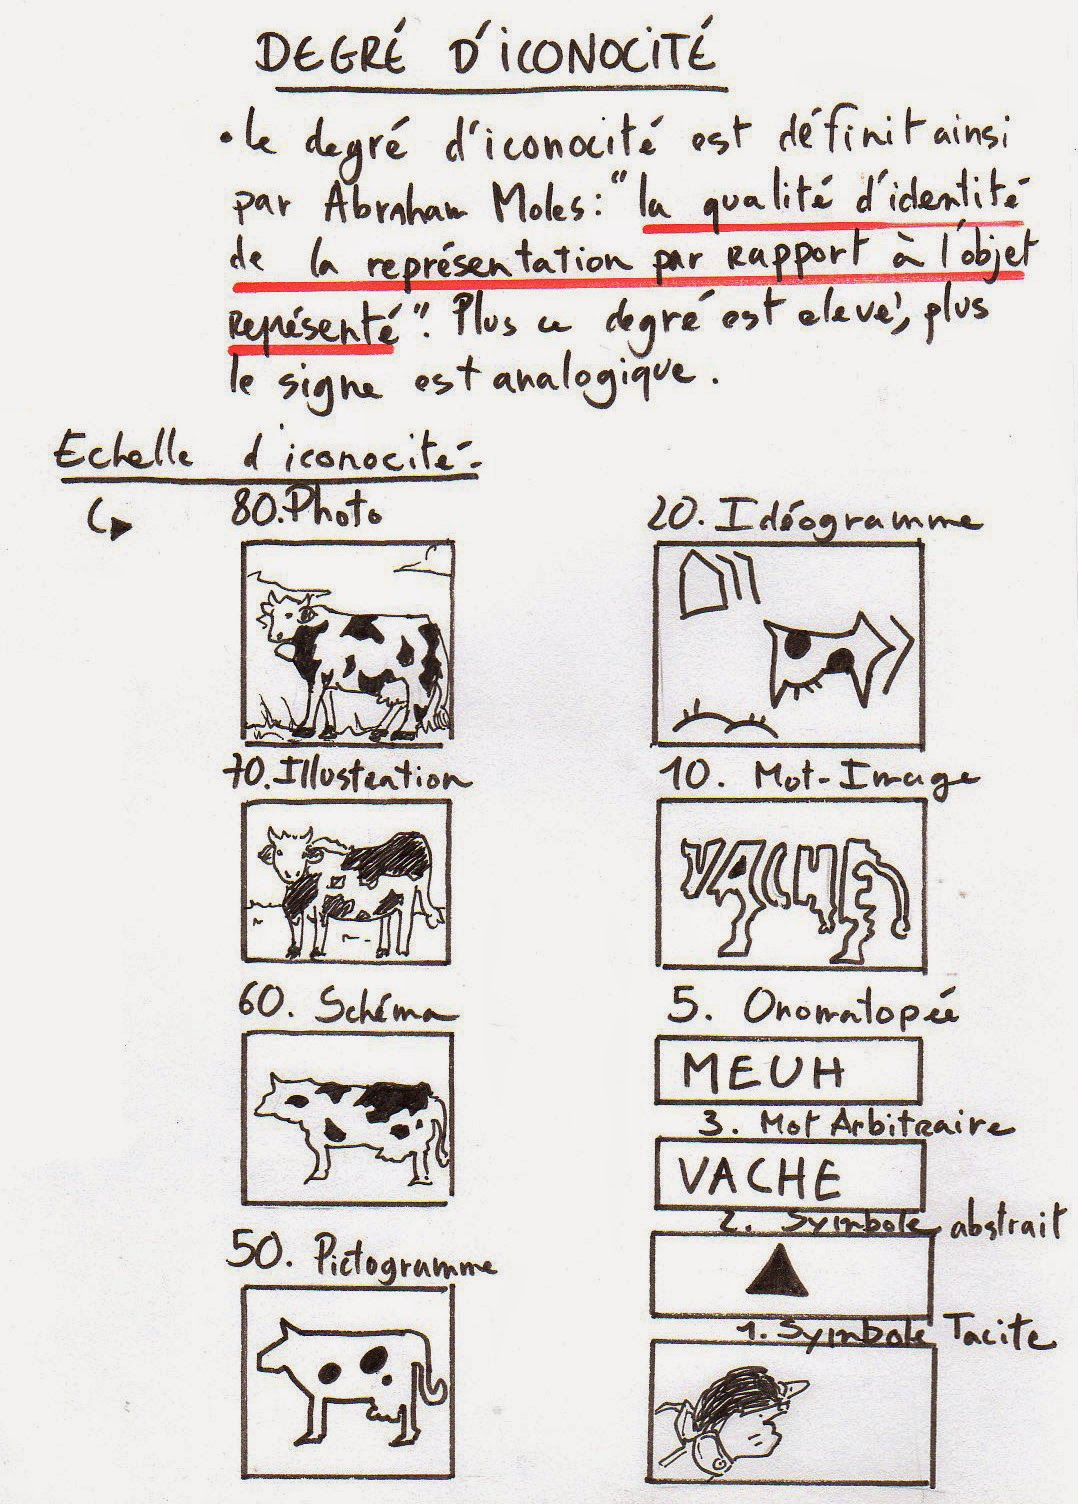 DEGRÉ D'ICONOCITÉ
• le degré d'iconocité est définit ainsi
par Abraham Moles : "la qualité d'identité
de la représentation par rapport à l'objet
représenté". Plus ce degré est elevé, plus
le signe est analogique.
Echelle d'iconocité -
80. Photo
70. Illustration
60. Schéma
50. Pictogramme
20. Idéogramme
10. Mot-Image
VACHE
5. Onomatopée
MEUH
3. Mot Arbitraire
VACHE
2. Symbole abstrait
1. Symbole Tacite